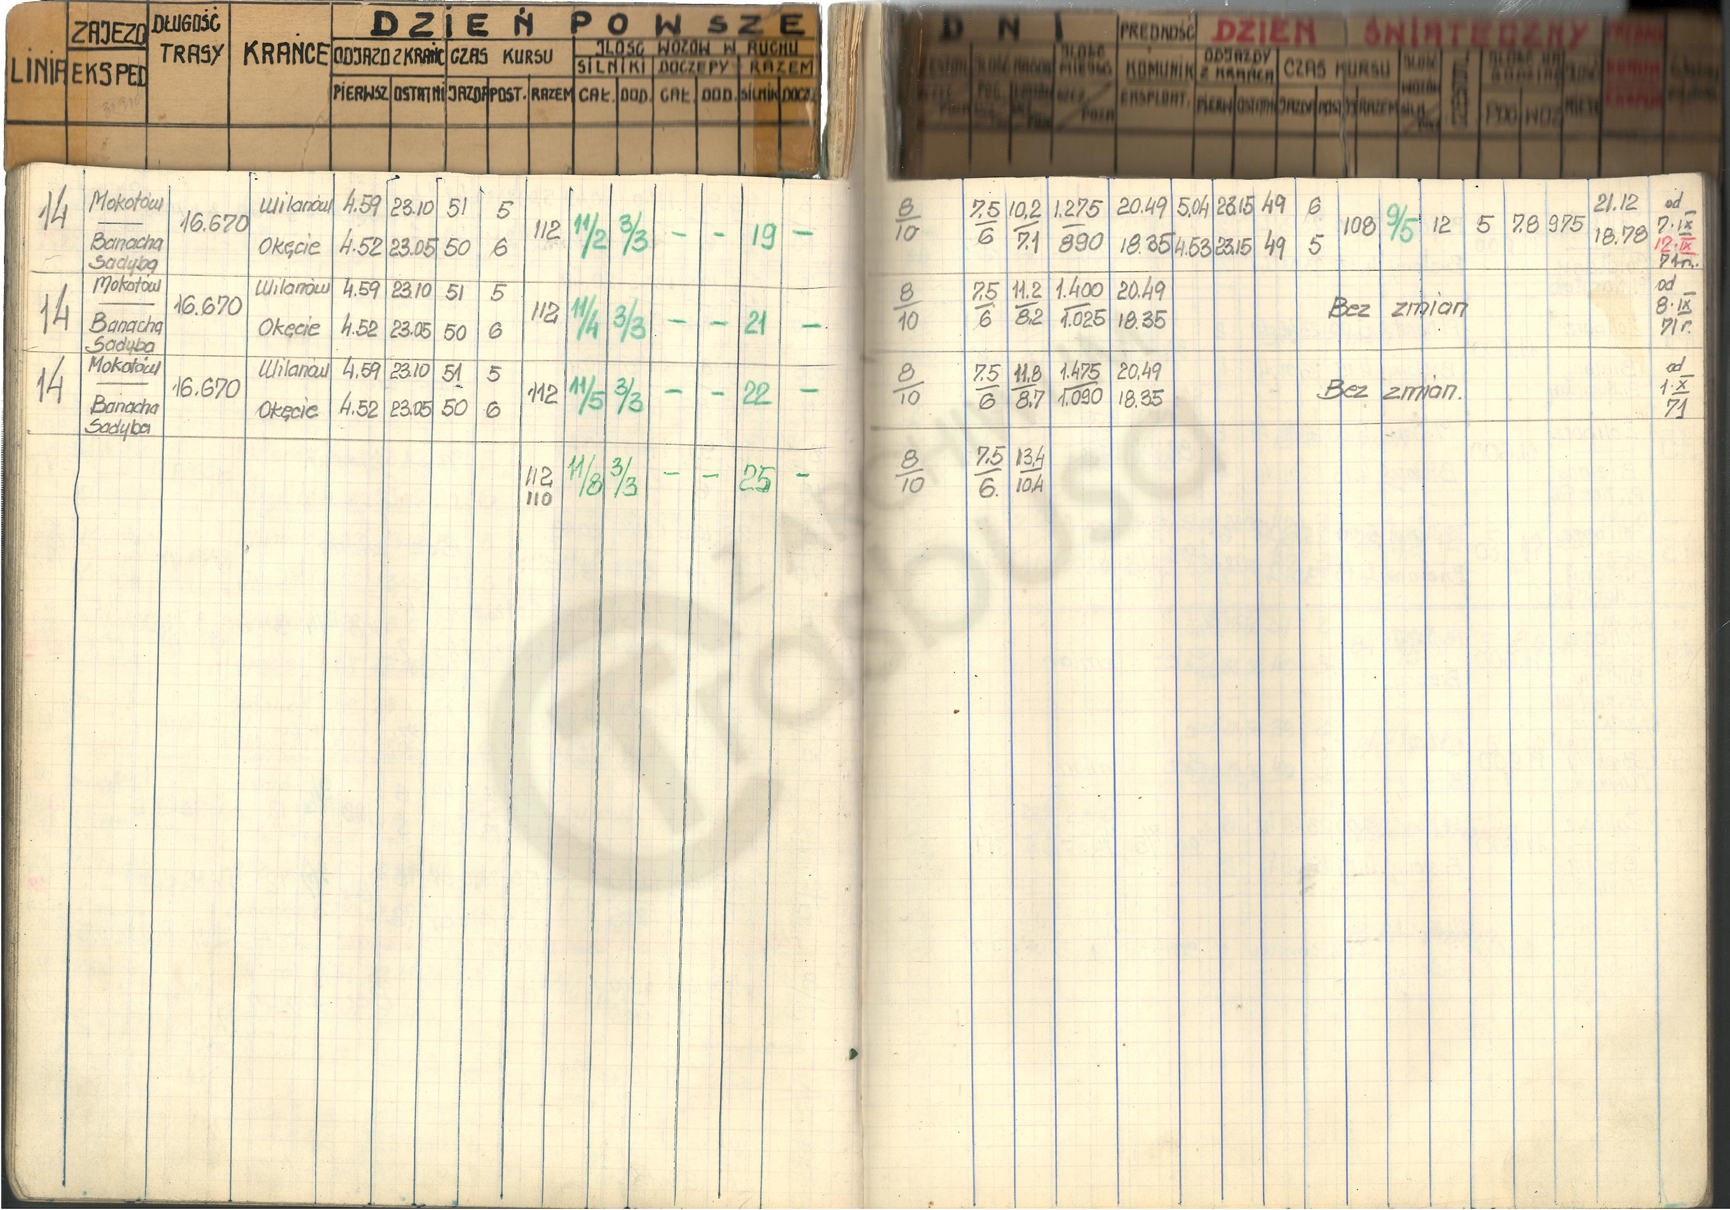 DZIEŃ POWSZE DNI
LINIA ZAJEZD EKSPED DŁUGOŚĆ TRASY KRAŃCE
ODJAZD Z KRAŃC CZAS KURSU ILOŚĆ WOZÓW W RUCHU
SILNIKI DOCZEPY RAZEM
PIERWSZ OSTATNI JAZDA POST. RAZEM CAŁ. DOD. CAŁ. DOD. SILNIK DOCZ.
PRĘDKOŚĆ KOMUNIK EKSPLOAT.
DZIEŃ ŚWIĄTECZNY
ODJAZDY Z KRAŃCA CZAS KURSU
PIERW OSTATNI JAZDA POST RAZEM
14 Mokotów 16.670 Wilanów 4.59 23.10 51 5 112 11/2 3/3 – – 19 – 8/10 7.5 10,2 1.275 20.49 5.04 23.15 49 6 108 9/5 12 5 7.8 975 21.12 od
Banacha Okęcie 4.52 23.05 50 6 6 7.1 890 18.35 4.53 23.15 49 5 18.78 7.IX
Sadyba 12.IX
71r.
14 Mokotów 16.670 Wilanów 4.59 23.10 51 5 112 11/4 3/3 – – 21 – 8/10 7.5 11.2 1.400 20.49 Bez zmian od
Banacha Okęcie 4.52 23.05 50 6 6 8.2 1.025 18.35 8.IX
Sadyba 71r.
14 Mokotów 16.670 Wilanów 4.59 23.10 51 5 112 11/5 3/3 – – 22 – 8/10 7.5 11,8 1.475 20,49 Bez zmian. od
Banacha Okęcie 4.52 23.05 50 6 6 8.7 1.090 18.35 1.X
Sadyba 71
112 11/8 3/3 – – 25 – 8/10 7.5 13,4
110 6. 10.4
Z ARCHIWUM
Trasbusa